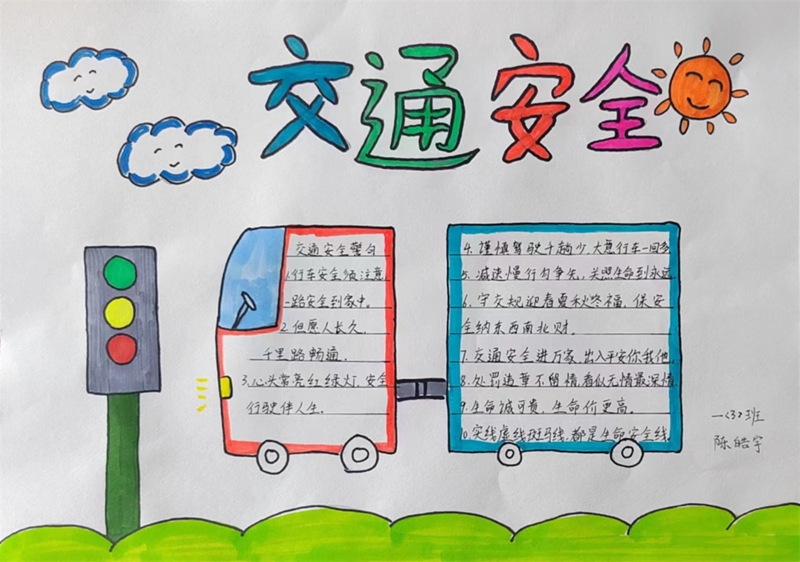 交通安全
交通安全警句
1.行车安全做注意,
一路安全到家中。
2.但愿人长久,
千里路畅通。
3.心头常亮红绿灯,安全
行驶伴人生。
4.谨慎驾驶千趟少,大意行车一回多
5.减速慢行勿争先,关照生命到永远
6.守交规迎春夏秋冬福,保安
全纳东西南北财。
7.交通安全进万家,出入平安你我他。
8.处罚违章不留情,看似无情最深情
9.生命诚可贵,生命价更高。
10.实线虚线斑马线,都是生命安全线
一(3)班
陈皓宇